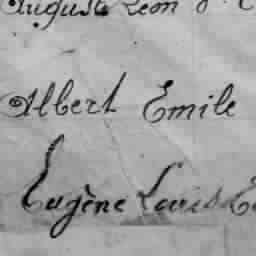 Auguste Léon
Albert Emile
Eugène Louis